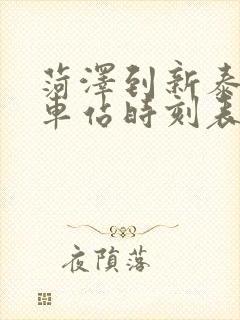 菏澤到新泰
車佔時刻表
夜隕落